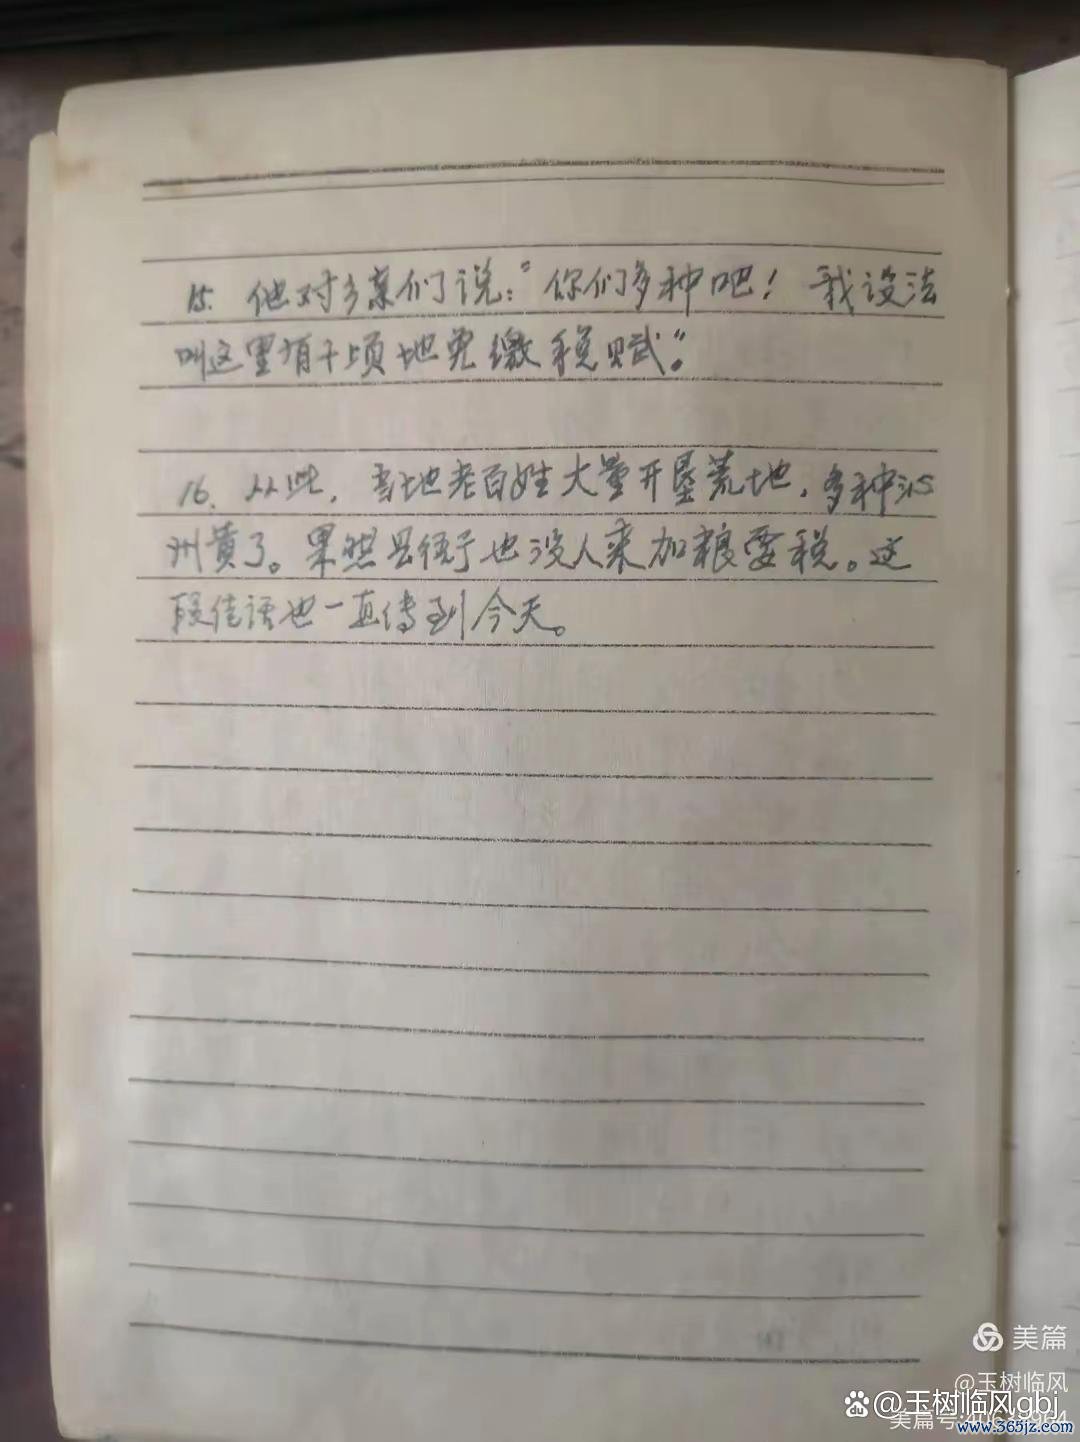 15. 他对乡亲们说：“你们多种吧！我设法
叫这里有千顷地免缴税赋。”
16. 从此，当地老百姓大量开垦荒地，多种沁
州黄了。果然县衙门也没人来加粮要税。这
段佳话也一直传到今天。
美篇
@玉树临风
@玉树临风gbj
美篇号:
www.365jz.com